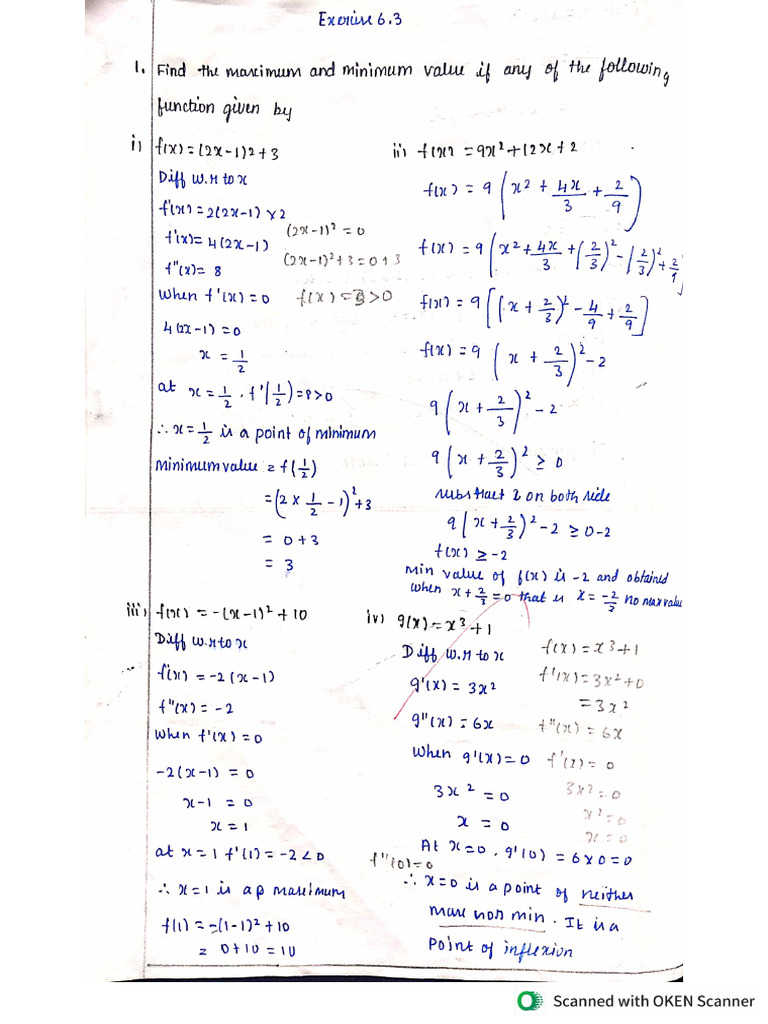 Exercise 6.3
1. Find the maximum and minimum value if any of the following
function given by
i) f(x) = (2x-1)2+3
Diff w.r to x
f'(x) = 2(2x-1) x2
f'(x) = 4(2x-1)
f''(x) = 8
when f'(x) = 0
4(2x-1) = 0
x = 1/2
at x = 1/2 . f'(1/2) = 8>0
∴ x = 1/2 is a point of minimum
minimum value = f(1/2)
= (2 x 1/2 - 1)²+3
= 0+3
= 3
(2x-1)² = 0
(2x-1)²+3 = 0+3
f(x) = 3 >0
ii) f(x) = 9x²+12x+2
f(x) = 9(x² + 4x/3 + 2/9)
f(x) = 9(x² + 4x/3 + (2/3)² - (2/3)² + 2/9)
f(x) = 9[(x + 2/3)² - 4/9 + 2/9]
f(x) = 9(x + 2/3)² - 2
9(x + 2/3)² - 2
9(x + 2/3)² ≥ 0
substract 2 on both side
9(x + 2/3)² - 2 ≥ 0-2
f(x) ≥ -2
min value of f(x) is -2 and obtained
when x + 2/3 = 0 that is x = -2/3 no max value
iii) f(x) = -(x-1)² + 10
Diff w.r to x
f'(x) = -2(x-1)
f''(x) = -2
when f'(x) = 0
-2(x-1) = 0
x-1 = 0
x = 1
at x = 1 f'(1) = -2 < 0
∴ x = 1 is a p maximum
f(1) = -(1-1)² + 10
= 0+10 = 10
iv) g(x) = x³+1
Diff w.r to x
g'(x) = 3x²
g''(x) = 6x
when g'(x) = 0
3x² = 0
x = 0
At x=0 . g'(0) = 6x0 = 0
∴ x=0 is a point of neither
max nor min . It is a
point of inflexion
f(x) = x³+1
f'(x) = 3x²+0
= 3x²
f''(x) = 6x
f'(x) = 0
3x² = 0
x² = 0
x = 0
f''(0) = 0
Scanned with OKEN Scanner